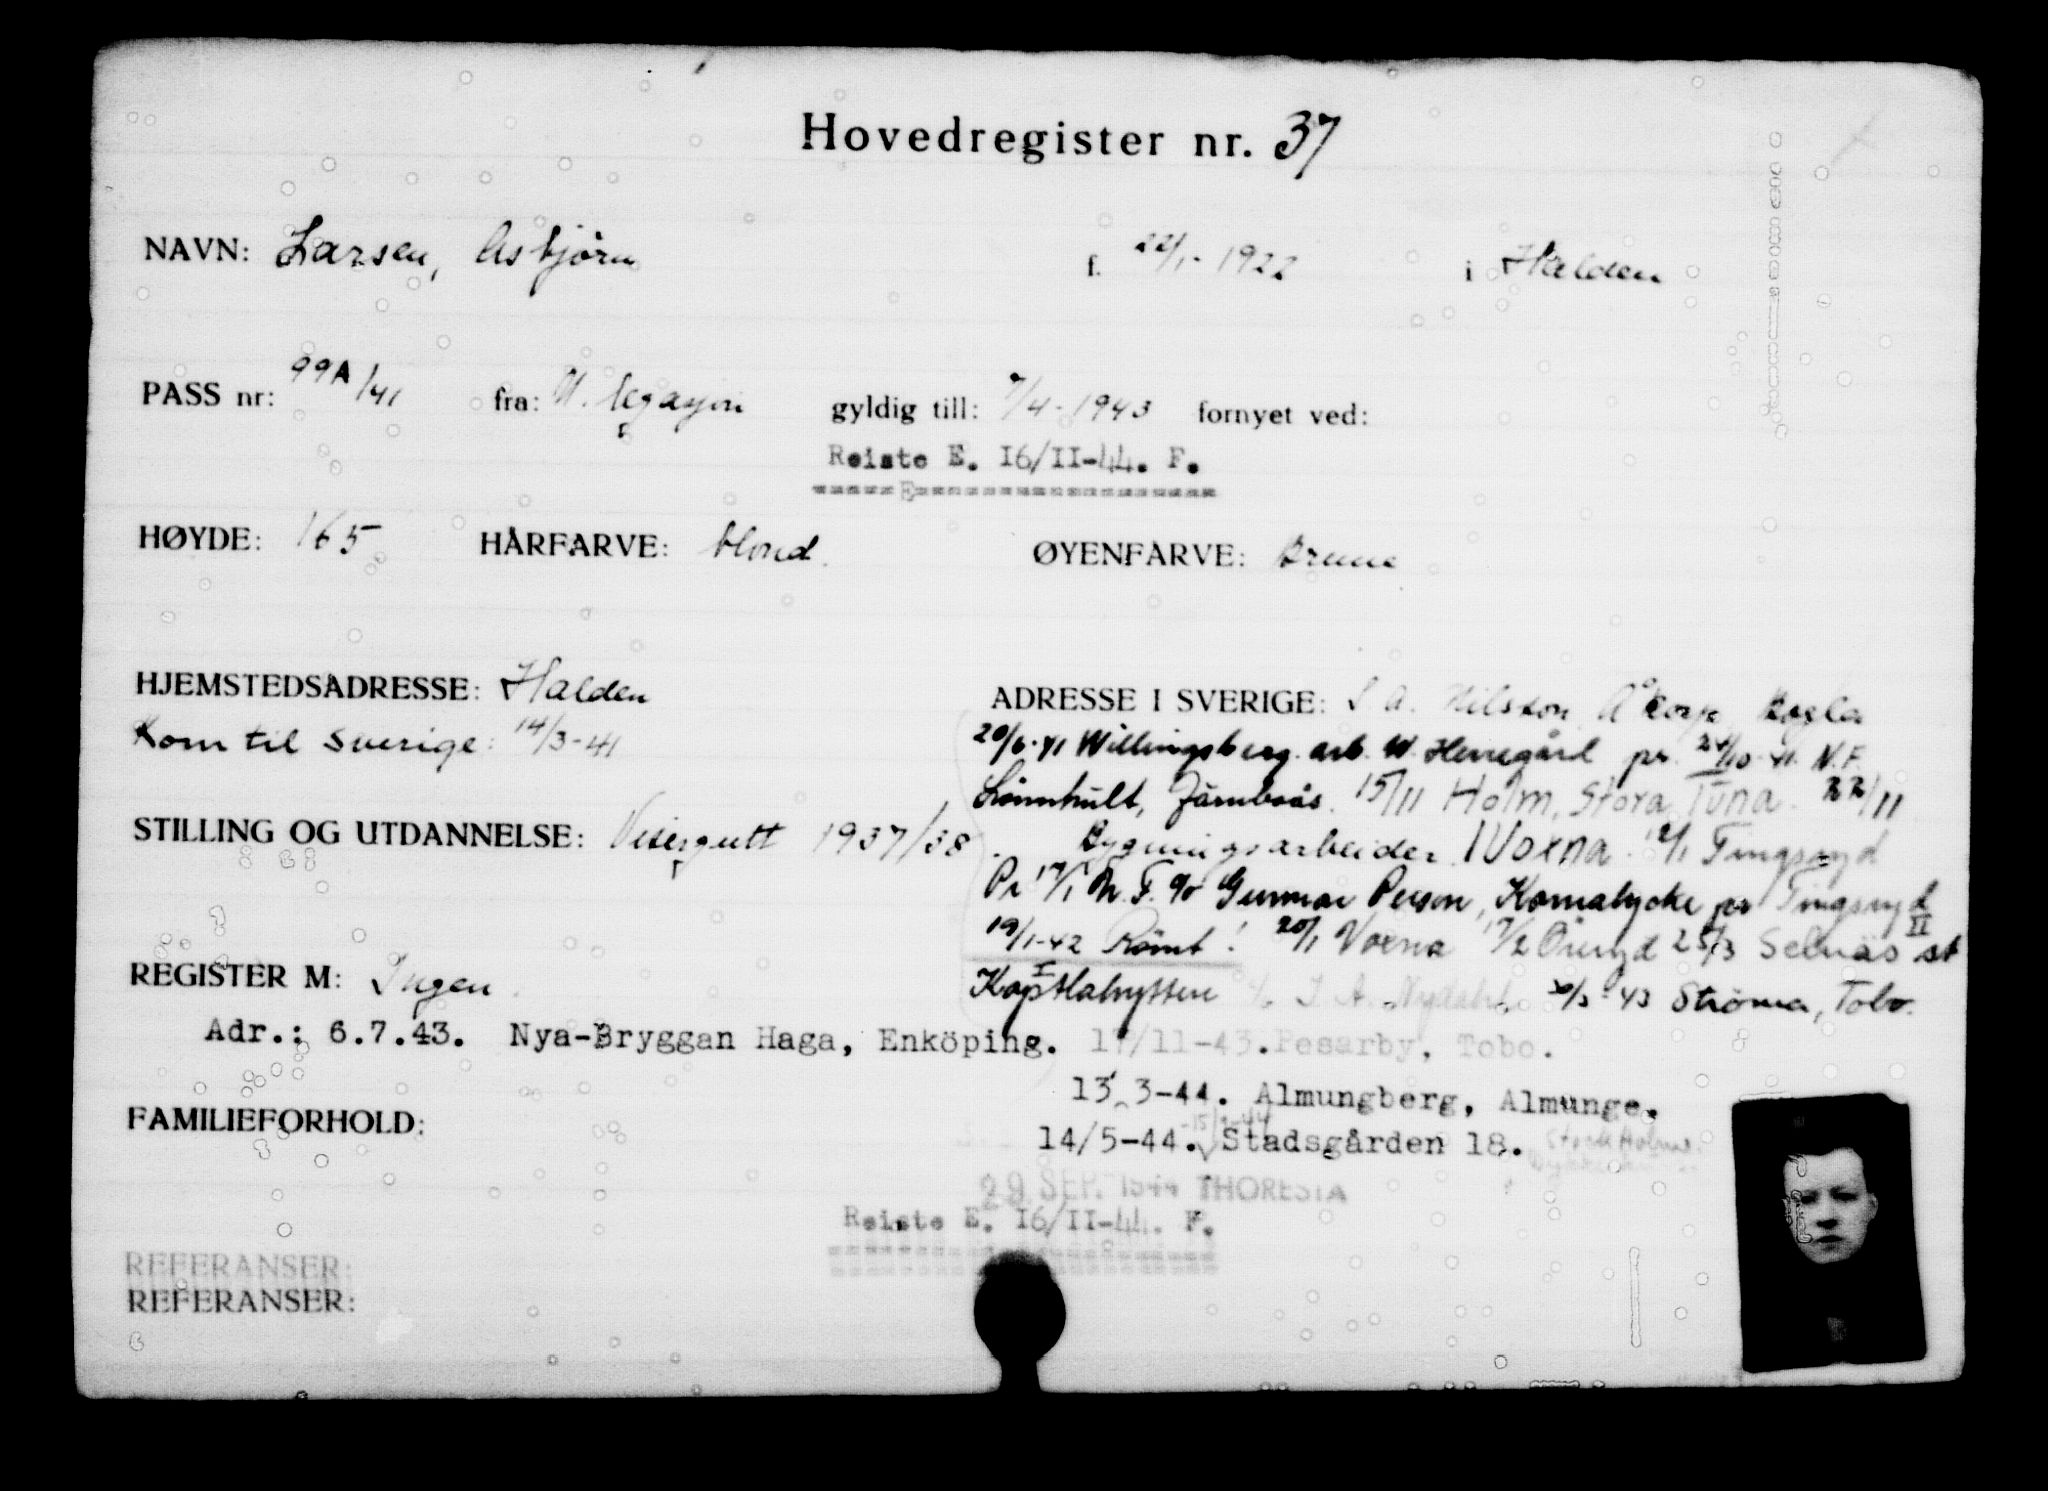 Hovedregister nr. 37
NAVN: Larsen, Asbjörn f. 22/1-1922 i Halden
PASS nr: 99A/41 fra: N. legasjon gyldig till: 7/4-1943 fornyet ved:
Reiste E. I6/II-44. F.
HØYDE: 165 HÅRFARVE: blond. ØYENFARVE: brune
HJEMSTEDSADRESSE: Halden
Kom til Sverige: 14/3-41
STILLING OG UTDANNELSE: Visergutt 1937/38.
REGISTER M: Ingen.
ADRESSE I SVERIGE: A. Nilsson
20/6-41 Willingsberg. arb. W. Herregård pr. 24/10-41. N.F.
Lönnhult, Järnboås. 15/11 Holm, Stora Tuna. 22/11
Bygningsarbeider. Voxna. 12/1 Tingsryd
Pr 17/1 N.F. c/o Gunnar Person, Kornalycke pr Tingsryd
19/1-42 Römt! 20/1 Voxna 17/2 Öneryd 25/3 Selnäs st II
Kapstlahyttan J. A. Nydahl. 30/3-43 Ströma, Tobo.
Adr.: 6.7.43. Nya-Bryggan Haga, Enköping. 17/11-43. Pesarby, Tobo.
13. 3-44. Almungberg, Almunge.
FAMILIEFORHOLD:
14/5-44. Stadsgården 18. Stockholm.
29 SEP. 1944 THORESTA
Reiste E. I6/II-44. F.
REFERANSER:
REFERANSER: